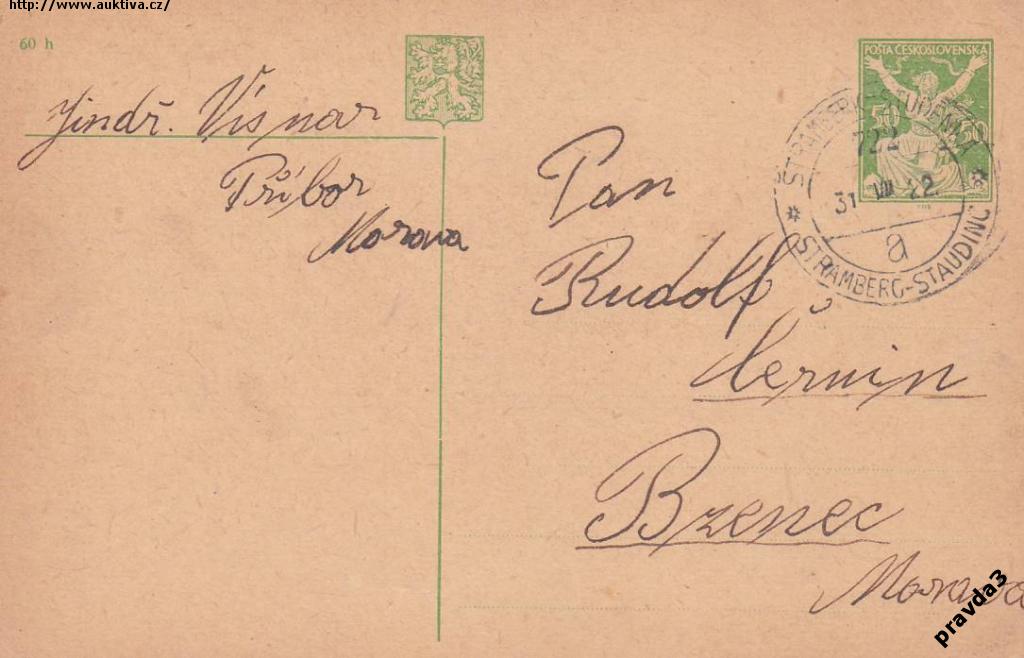 http://www.auktiva.cz/
60 h
Jindř. Visnar
Příbor
Morava
POŠTA ČESKOSLOVENSKÁ
50 50
ŠTRAMBERK-STUDÉNKA
722
31 VIII 22
a
STRAMBERG-STAUDING
Pan
Rudolf
Bzenec
Morava
pravda3